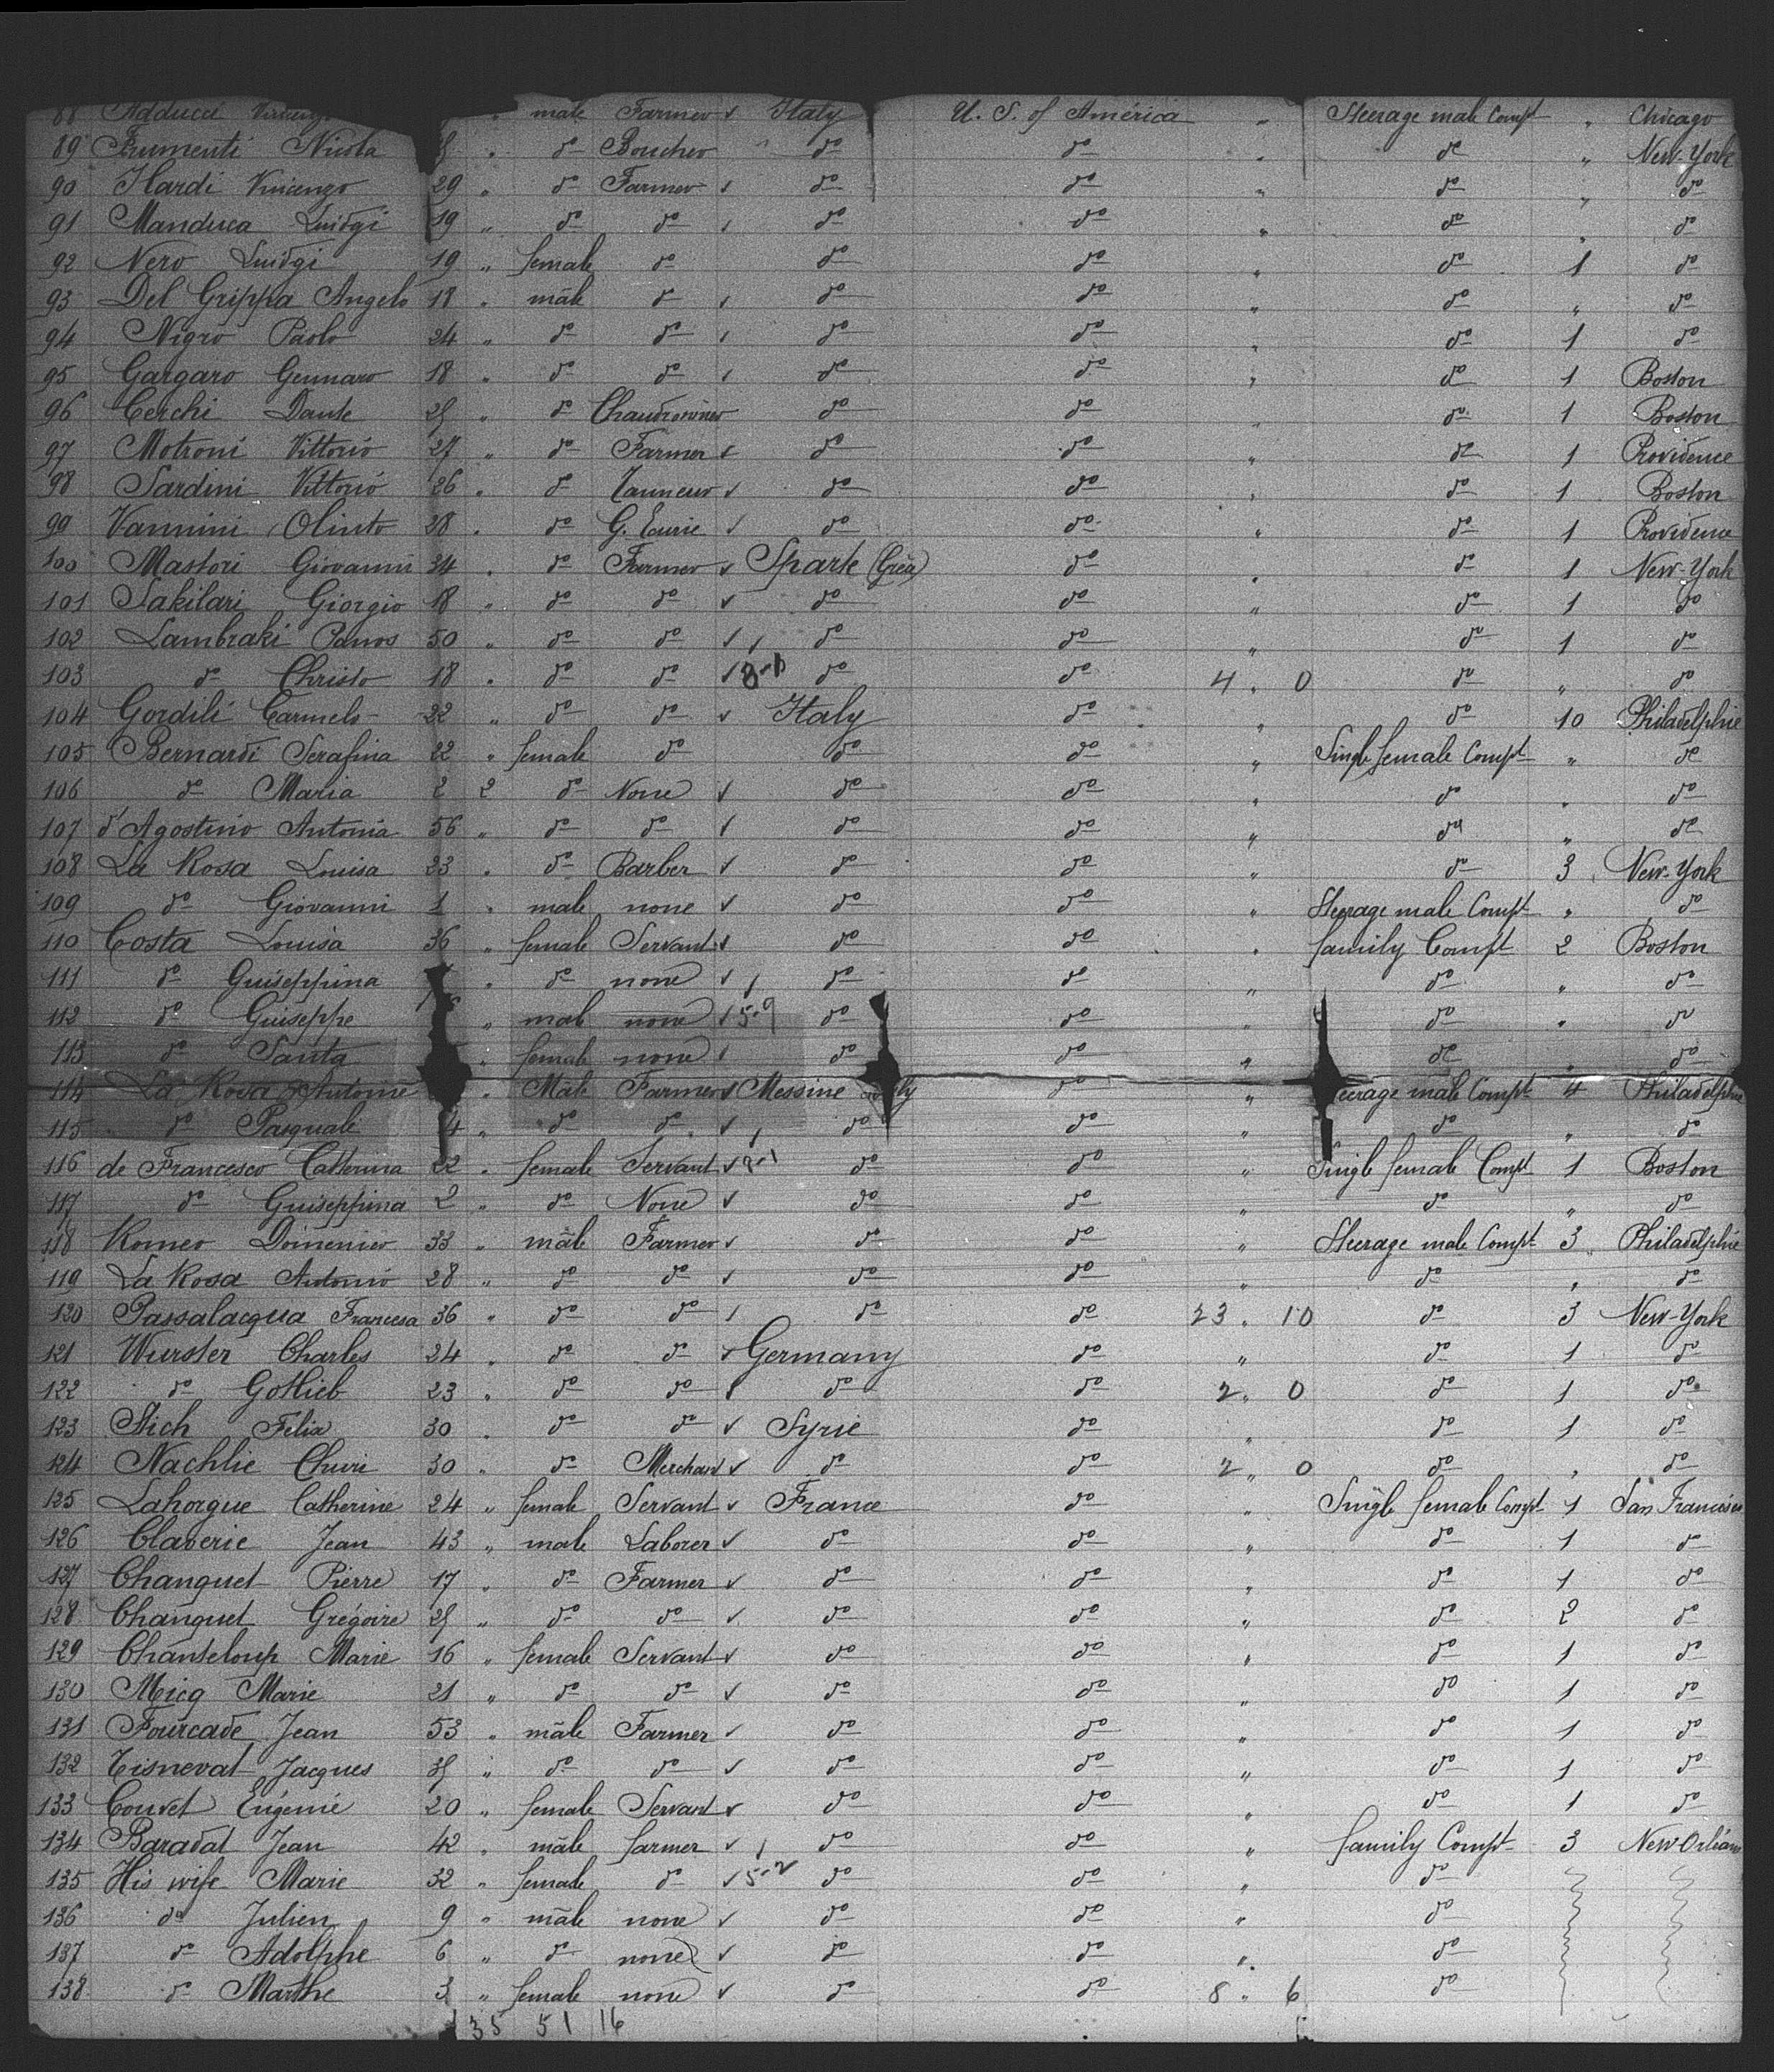 88 Adducci male Farmer Italy U. S. of América " Steerage male Compt " Chicago
89 Frumenti Nicola " do Boucher do do " do " New-York
90 Ilardi Vincenzo 29 " do Farmer do do " do " do
91 Manduca Luidgi 19 " do do do do " do " do
92 Nero Luidgi 19 " female do do do " do 1 do
93 Del Grippa Angelo 18 " mâle do do do " do " do
94 Nigro Paolo 24 " do do do do " do 1 do
95 Gargaro Gennaro 18 " do do do do " do 1 Boston
96 Cerchi Dante 25 " do Chaudronnier do do " do 1 Boston
97 Motroni Vittorio 27 " do Farmer do do " do 1 Providence
98 Sardini Vittorio 26 " do Tanneur do do " do 1 Boston
99 Vannini Olinto 28 " do G. Ecurie do do " do 1 Providence
100 Mastori Giovanni 34 " do Farmer Sparte (Grèce) do " do 1 New-York
101 Sakilari Giorgio 18 " do do do do " do 1 do
102 Lambraki Panos 50 " do do do do " do 1 do
103 do Christo 18 " do do do do 4 " 0 do " do
104 Gordili Carmelo 22 " do do Italy do " do 10 Philadelphie
105 Bernardi Serafina 22 " female do do do " Single female Compt " do
106 do Maria 2 2 do None do do " do " do
107 d'Agostino Antonia 56 " do do do do " do " do
108 La Rosa Louisa 23 " do Barber do do " do 3 New-York
109 do Giovanni 1 " male none do do " Steerage male Compt " do
110 Costa Louisa 36 " female Servant do do " family Compt 2 Boston
111 do Guiseppina " do none do do " do " do
112 do Guiseppe " male none 5-9 do do " do " do
113 do Santa " female none do do " do " do
114 La Rosa Antoine " Mâle Farmer Messine do " Steerage male Compt 4 Philadelphie
115 do Pasquale 4 " do do do do " do " do
116 de Francesco Catterina 22 " female Servant do do " Single female Compt 1 Boston
117 do Guiseppina 2 " do None do do " do " do
118 Romeo Domenico 33 " mâle Farmer do do " Steerage male Compt 3 Philadelphie
119 La Rosa Antonio 28 " do do do do " do " do
120 Passalacqua Francesa 36 " do do do do 23 " 10 do 3 New-York
121 Wurster Charles 24 " do do Germany do " do 1 do
122 do Gottlieb 23 " do do do do 2 " 0 do 1 do
123 Stich Félix 30 " do do Syrie do " do 1 do
124 Nachlie Churi 30 " do Merchant do do 2 " 0 do " do
125 Lahorgue Catherine 24 " female Servant France do " Single female Compt 1 San Francisco
126 Claverie Jean 43 " male Laborer do do " do 1 do
127 Changuet Pierre 17 " do Farmer do do " do 1 do
128 Changuet Grégoire 25 " do do do do " do 2 do
129 Chanteloup Marie 16 " female Servant do do " do 1 do
130 Micq Marie 21 " do do do do " do 1 do
131 Fourcade Jean 53 " mâle Farmer do do " do 1 do
132 Tisnerat Jacques 35 " do do do do " do 1 do
133 Couvet Eugénie 20 " female Servant do do " do 1 do
134 Baradat Jean 42 " mâle farmer do do " family Compt 3 New Orléans
135 His wife Marie 32 " female do 5-2 do do " do
136 do Julien 9 " mâle none do do " do
137 do Adolphe 6 " do none do do " do
138 do Marthe 3 " female none do do 8 " 6 do
35 51 16